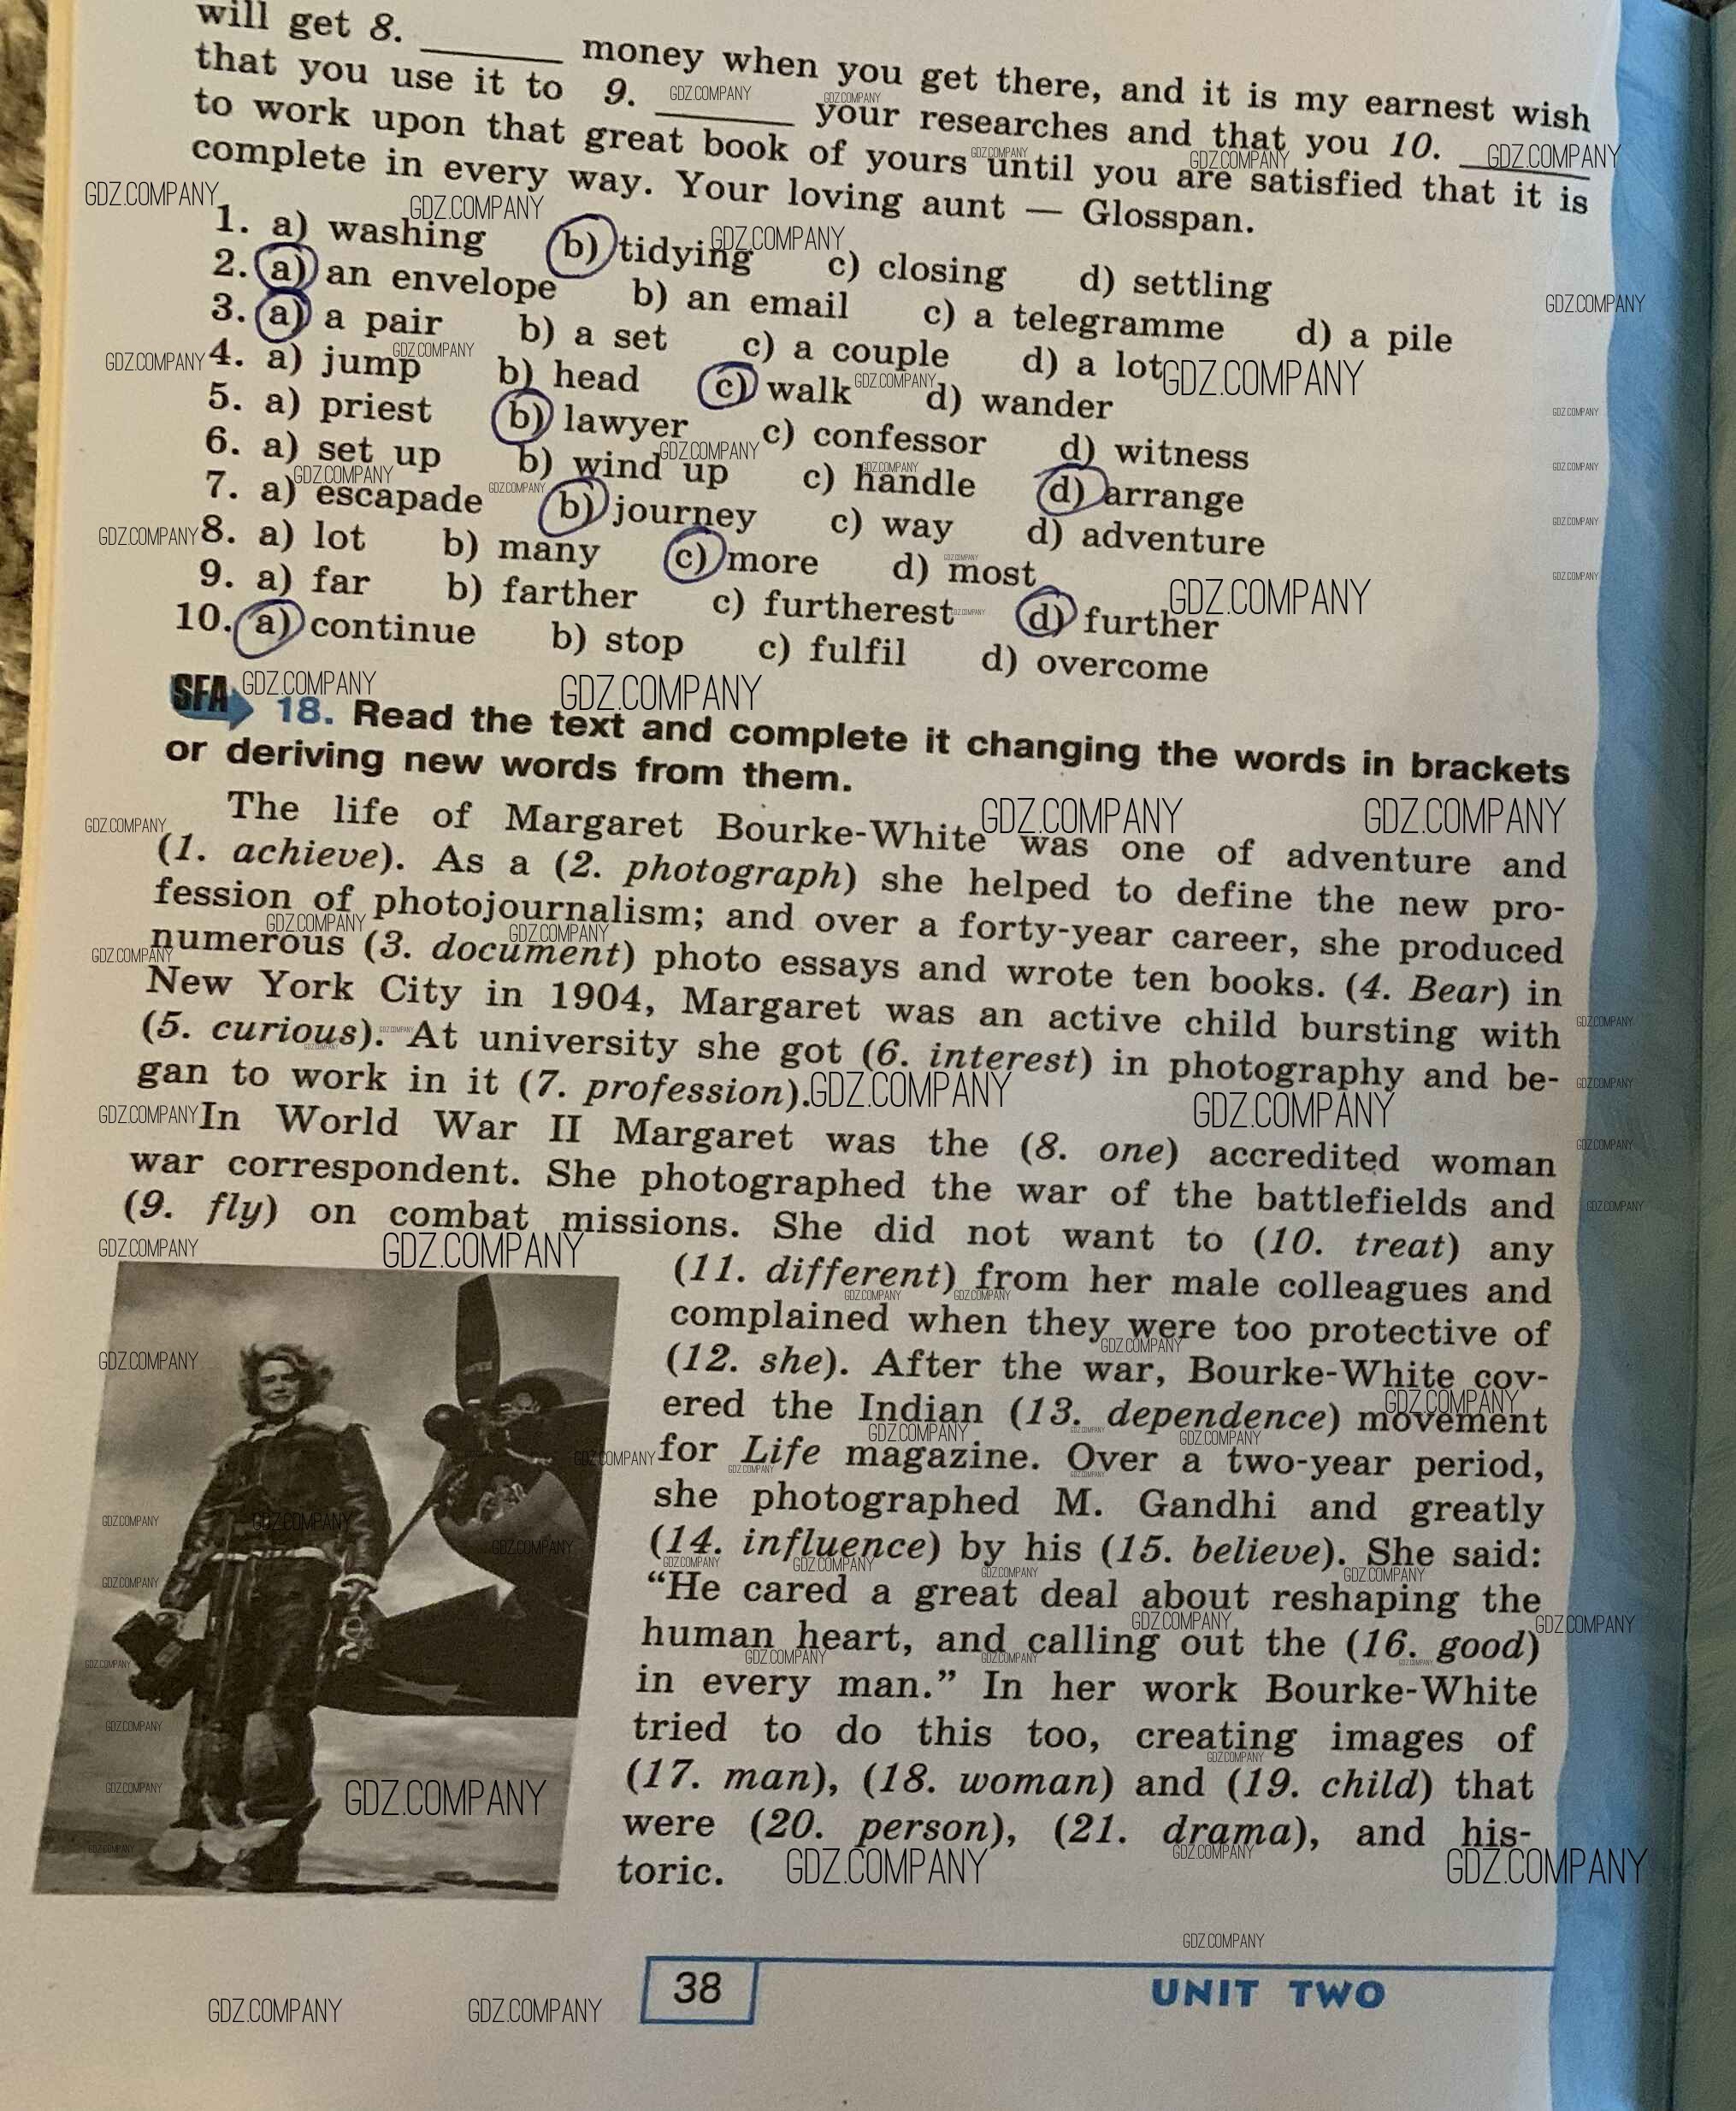 will get 8. ______ money when you get there, and it is my earnest wish
that you use it to 9. ______ your researches and that you 10. ______
to work upon that great book of yours until you are satisfied that it is
complete in every way. Your loving aunt — Glosspan.
1. a) washing b) tidying c) closing d) settling
2. a) an envelope b) an email c) a telegramme d) a pile
3. a) a pair b) a set c) a couple d) a lot
4. a) jump b) head c) walk d) wander
5. a) priest b) lawyer c) confessor d) witness
6. a) set up b) wind up c) handle d) arrange
7. a) escapade b) journey c) way d) adventure
8. a) lot b) many c) more d) most
9. a) far b) farther c) furtherest d) further
10. a) continue b) stop c) fulfil d) overcome
SFA 18. Read the text and complete it changing the words in brackets
or deriving new words from them.
The life of Margaret Bourke-White was one of adventure and
(1. achieve). As a (2. photograph) she helped to define the new pro-
fession of photojournalism; and over a forty-year career, she produced
numerous (3. document) photo essays and wrote ten books. (4. Bear) in
New York City in 1904, Margaret was an active child bursting with
(5. curious). At university she got (6. interest) in photography and be-
gan to work in it (7. profession).
In World War II Margaret was the (8. one) accredited woman
war correspondent. She photographed the war of the battlefields and
(9. fly) on combat missions. She did not want to (10. treat) any
(11. different) from her male colleagues and
complained when they were too protective of
(12. she). After the war, Bourke-White cov-
ered the Indian (13. dependence) movement
for Life magazine. Over a two-year period,
she photographed M. Gandhi and greatly
(14. influence) by his (15. believe). She said:
“He cared a great deal about reshaping the
human heart, and calling out the (16. good)
in every man.” In her work Bourke-White
tried to do this too, creating images of
(17. man), (18. woman) and (19. child) that
were (20. person), (21. drama), and his-
toric.
38
UNIT TWO
GDZ.COMPANY